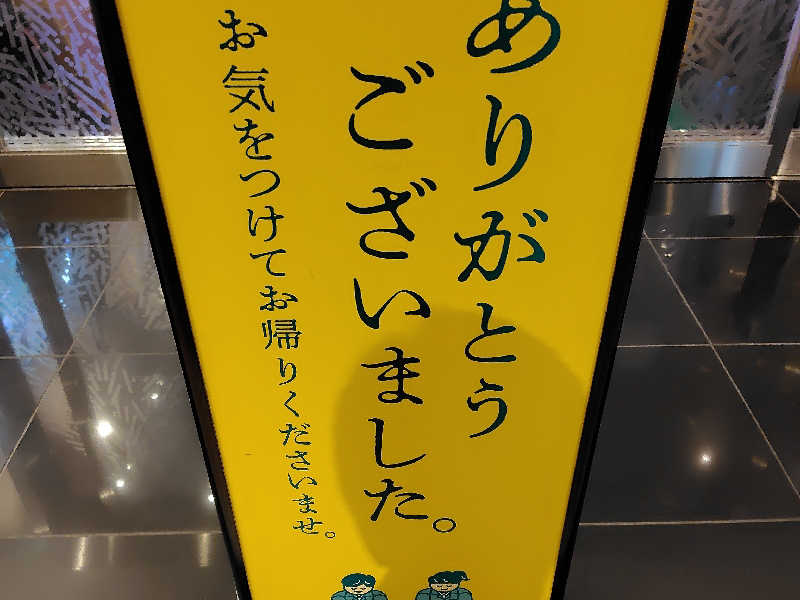 ありがとう
ございました。
お気をつけてお帰りくださいませ。